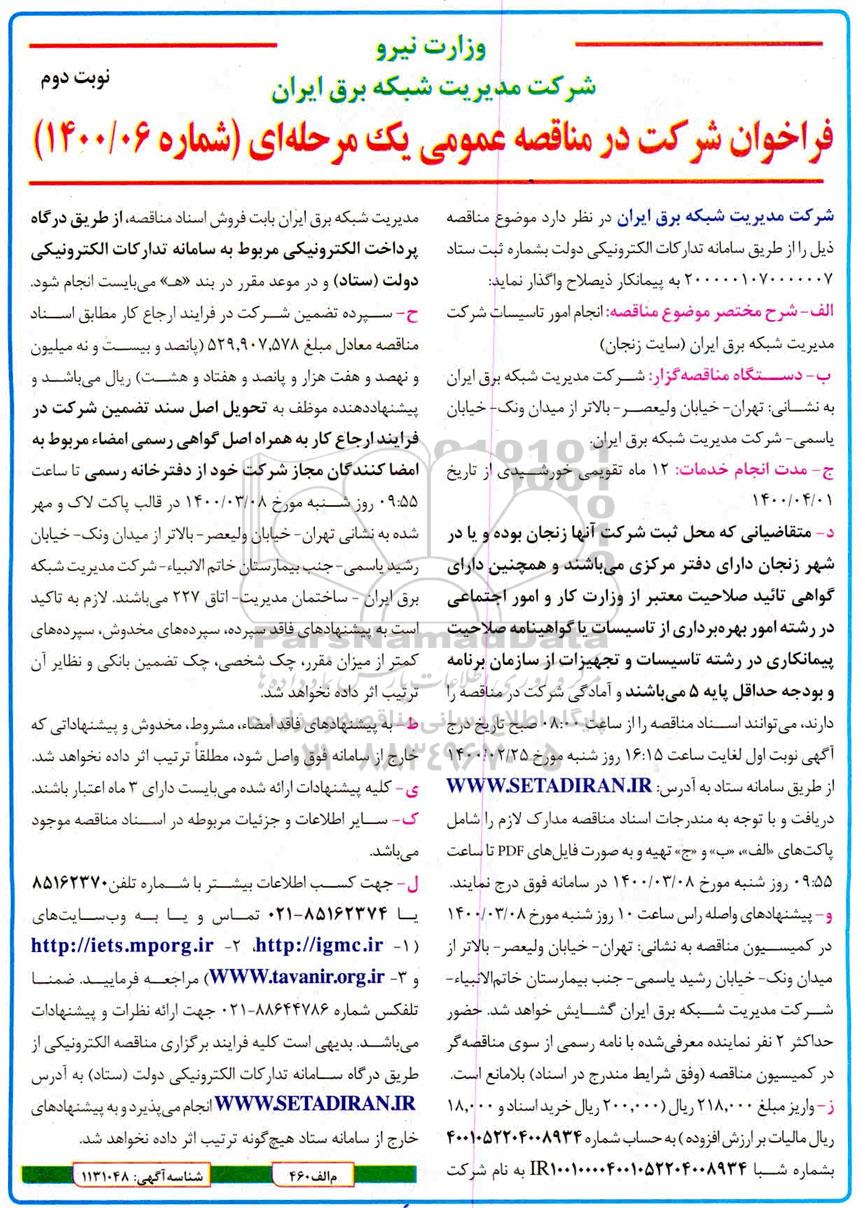 وزارت نیرو
شرکت مدیریت شبکه برق ایران
نوبت دوم
فراخوان شرکت در مناقصه عمومی یک مرحله‌ای (شماره ۱۴۰۰/۰۶)
شرکت مدیریت شبکه برق ایران در نظر دارد موضوع مناقصه
ذیل را از طریق سامانه تدارکات الکترونیکی دولت بشماره ثبت ستاد
۲۰۰۰۰۰۱۰۷۰۰۰۰۰۰۷ به پیمانکار ذیصلاح واگذار نماید:
الف- شرح مختصر موضوع مناقصه: انجام امور تاسیسات شرکت
مدیریت شبکه برق ایران (سایت زنجان)
ب- دستگاه مناقصه‌گزار: شرکت مدیریت شبکه برق ایران
به نشانی: تهران- خیابان ولیعصر- بالاتر از میدان ونک- خیابان
یاسمی- شرکت مدیریت شبکه برق ایران.
ج- مدت انجام خدمات: ۱۲ ماه تقویمی خورشیدی از تاریخ
۱۴۰۰/۰۴/۰۱
د- متقاضیانی که محل ثبت شرکت آنها زنجان بوده و یا در
شهر زنجان دارای دفتر مرکزی می‌باشند و همچنین دارای
گواهی تائید صلاحیت معتبر از وزارت کار و امور اجتماعی
در رشته امور بهره‌برداری از تاسیسات یا گواهینامه صلاحیت
پیمانکاری در رشته تاسیسات و تجهیزات از سازمان برنامه
و بودجه حداقل پایه ۵ می‌باشند و آمادگی شرکت در مناقصه را
دارند، می‌توانند اسناد مناقصه را از ساعت ۰۸:۰۰ صبح تاریخ درج
آگهی نوبت اول لغایت ساعت ۱۶:۱۵ روز شنبه مورخ ۱۴۰۰/۰۲/۲۵
از طریق سامانه ستاد به آدرس: WWW.SETADIRAN.IR
دریافت و با توجه به مندرجات اسناد مناقصه مدارک لازم را شامل
پاکت‌های «الف»، «ب» و «ج» تهیه و به صورت فایل‌های PDF تا ساعت
۰۹:۵۵ روز شنبه مورخ ۱۴۰۰/۰۳/۰۸ در سامانه فوق درج نمایند.
و- پیشنهادهای واصله راس ساعت ۱۰ روز شنبه مورخ ۱۴۰۰/۰۳/۰۸
در کمیسیون مناقصه به نشانی: تهران- خیابان ولیعصر- بالاتر از
میدان ونک- خیابان رشید یاسمی- جنب بیمارستان خاتم‌الانبیاء-
شرکت مدیریت شبکه برق ایران گشایش خواهد شد. حضور
حداکثر ۲ نفر نماینده معرفی‌شده با نامه رسمی از سوی مناقصه‌گر
در کمیسیون مناقصه (وفق شرایط مندرج در اسناد) بلامانع است.
ز- واریز مبلغ ۲۱۸,۰۰۰ ریال (۲۰۰,۰۰۰ ریال خرید اسناد و ۱۸,۰۰۰
ریال مالیات بر ارزش افزوده) به حساب شماره ۴۰۰۱۰۵۲۲۰۴۰۰۸۹۳۴
بشماره شبا IR۱۰۰۱۰۰۰۰۴۰۰۱۰۵۲۲۰۴۰۰۸۹۳۴ به نام شرکت
مدیریت شبکه برق ایران بابت فروش اسناد مناقصه، از طریق درگاه
پرداخت الکترونیکی مربوط به سامانه تدارکات الکترونیکی
دولت (ستاد) و در موعد مقرر در بند «هـ» می‌بایست انجام شود.
ح- سپرده تضمین شرکت در فرایند ارجاع کار مطابق اسناد
مناقصه معادل مبلغ ۵۲۹,۹۰۷,۵۷۸ (پانصد و بیست و نه میلیون
و نهصد و هفت هزار و پانصد و هفتاد و هشت) ریال می‌باشد و
پیشنهاددهنده موظف به تحویل اصل سند تضمین شرکت در
فرایند ارجاع کار به همراه اصل گواهی رسمی امضاء مربوط به
امضا کنندگان مجاز شرکت خود از دفترخانه رسمی تا ساعت
۰۹:۵۵ روز شنبه مورخ ۱۴۰۰/۰۳/۰۸ در قالب پاکت لاک و مهر
شده به نشانی تهران- خیابان ولیعصر- بالاتر از میدان ونک- خیابان
رشید یاسمی- جنب بیمارستان خاتم الانبیاء- شرکت مدیریت شبکه
برق ایران - ساختمان مدیریت- اتاق ۲۲۷ می‌باشند. لازم به تاکید
است به پیشنهادهای فاقد سپرده، سپرده‌های مخدوش، سپرده‌های
کمتر از میزان مقرر، چک شخصی، چک تضمین بانکی و نظایر آن
ترتیب اثر داده نخواهد شد.
ط- به پیشنهادهای فاقد امضاء، مشروط، مخدوش و پیشنهاداتی که
خارج از سامانه فوق واصل شود، مطلقاً ترتیب اثر داده نخواهد شد.
ی- کلیه پیشنهادات ارائه شده می‌بایست دارای ۳ ماه اعتبار باشند.
ک- سایر اطلاعات و جزئیات مربوطه در اسناد مناقصه موجود
می‌باشد.
ل- جهت کسب اطلاعات بیشتر با شماره تلفن ۸۵۱۶۲۳۷۰
یا ۸۵۱۶۲۳۷۴-۰۲۱ تماس و یا به وب‌سایت‌های
(۱- http://igmc.ir، ۲- http://iets.mporg.ir
و ۳- WWW.tavanir.org.ir) مراجعه فرمایید. ضمنا
تلفکس شماره ۸۸۶۴۴۷۸۶-۰۲۱ جهت ارائه نظرات و پیشنهادات
می‌باشد. بدیهی است کلیه فرایند برگزاری مناقصه الکترونیکی از
طریق درگاه سامانه تدارکات الکترونیکی دولت (ستاد) به آدرس
WWW.SETADIRAN.IR انجام می‌پذیرد و به پیشنهادهای
خارج از سامانه ستاد هیچ‌گونه ترتیب اثر داده نخواهد شد.
م‌الف ۴۶۰
شناسه آگهی: ۱۱۳۱۰۴۸
ParsNamadData
پایگاه اطلاع رسانی مناقصه و مزایده
۰۲۱-۸۸۳۴۹۶۷۰-۵